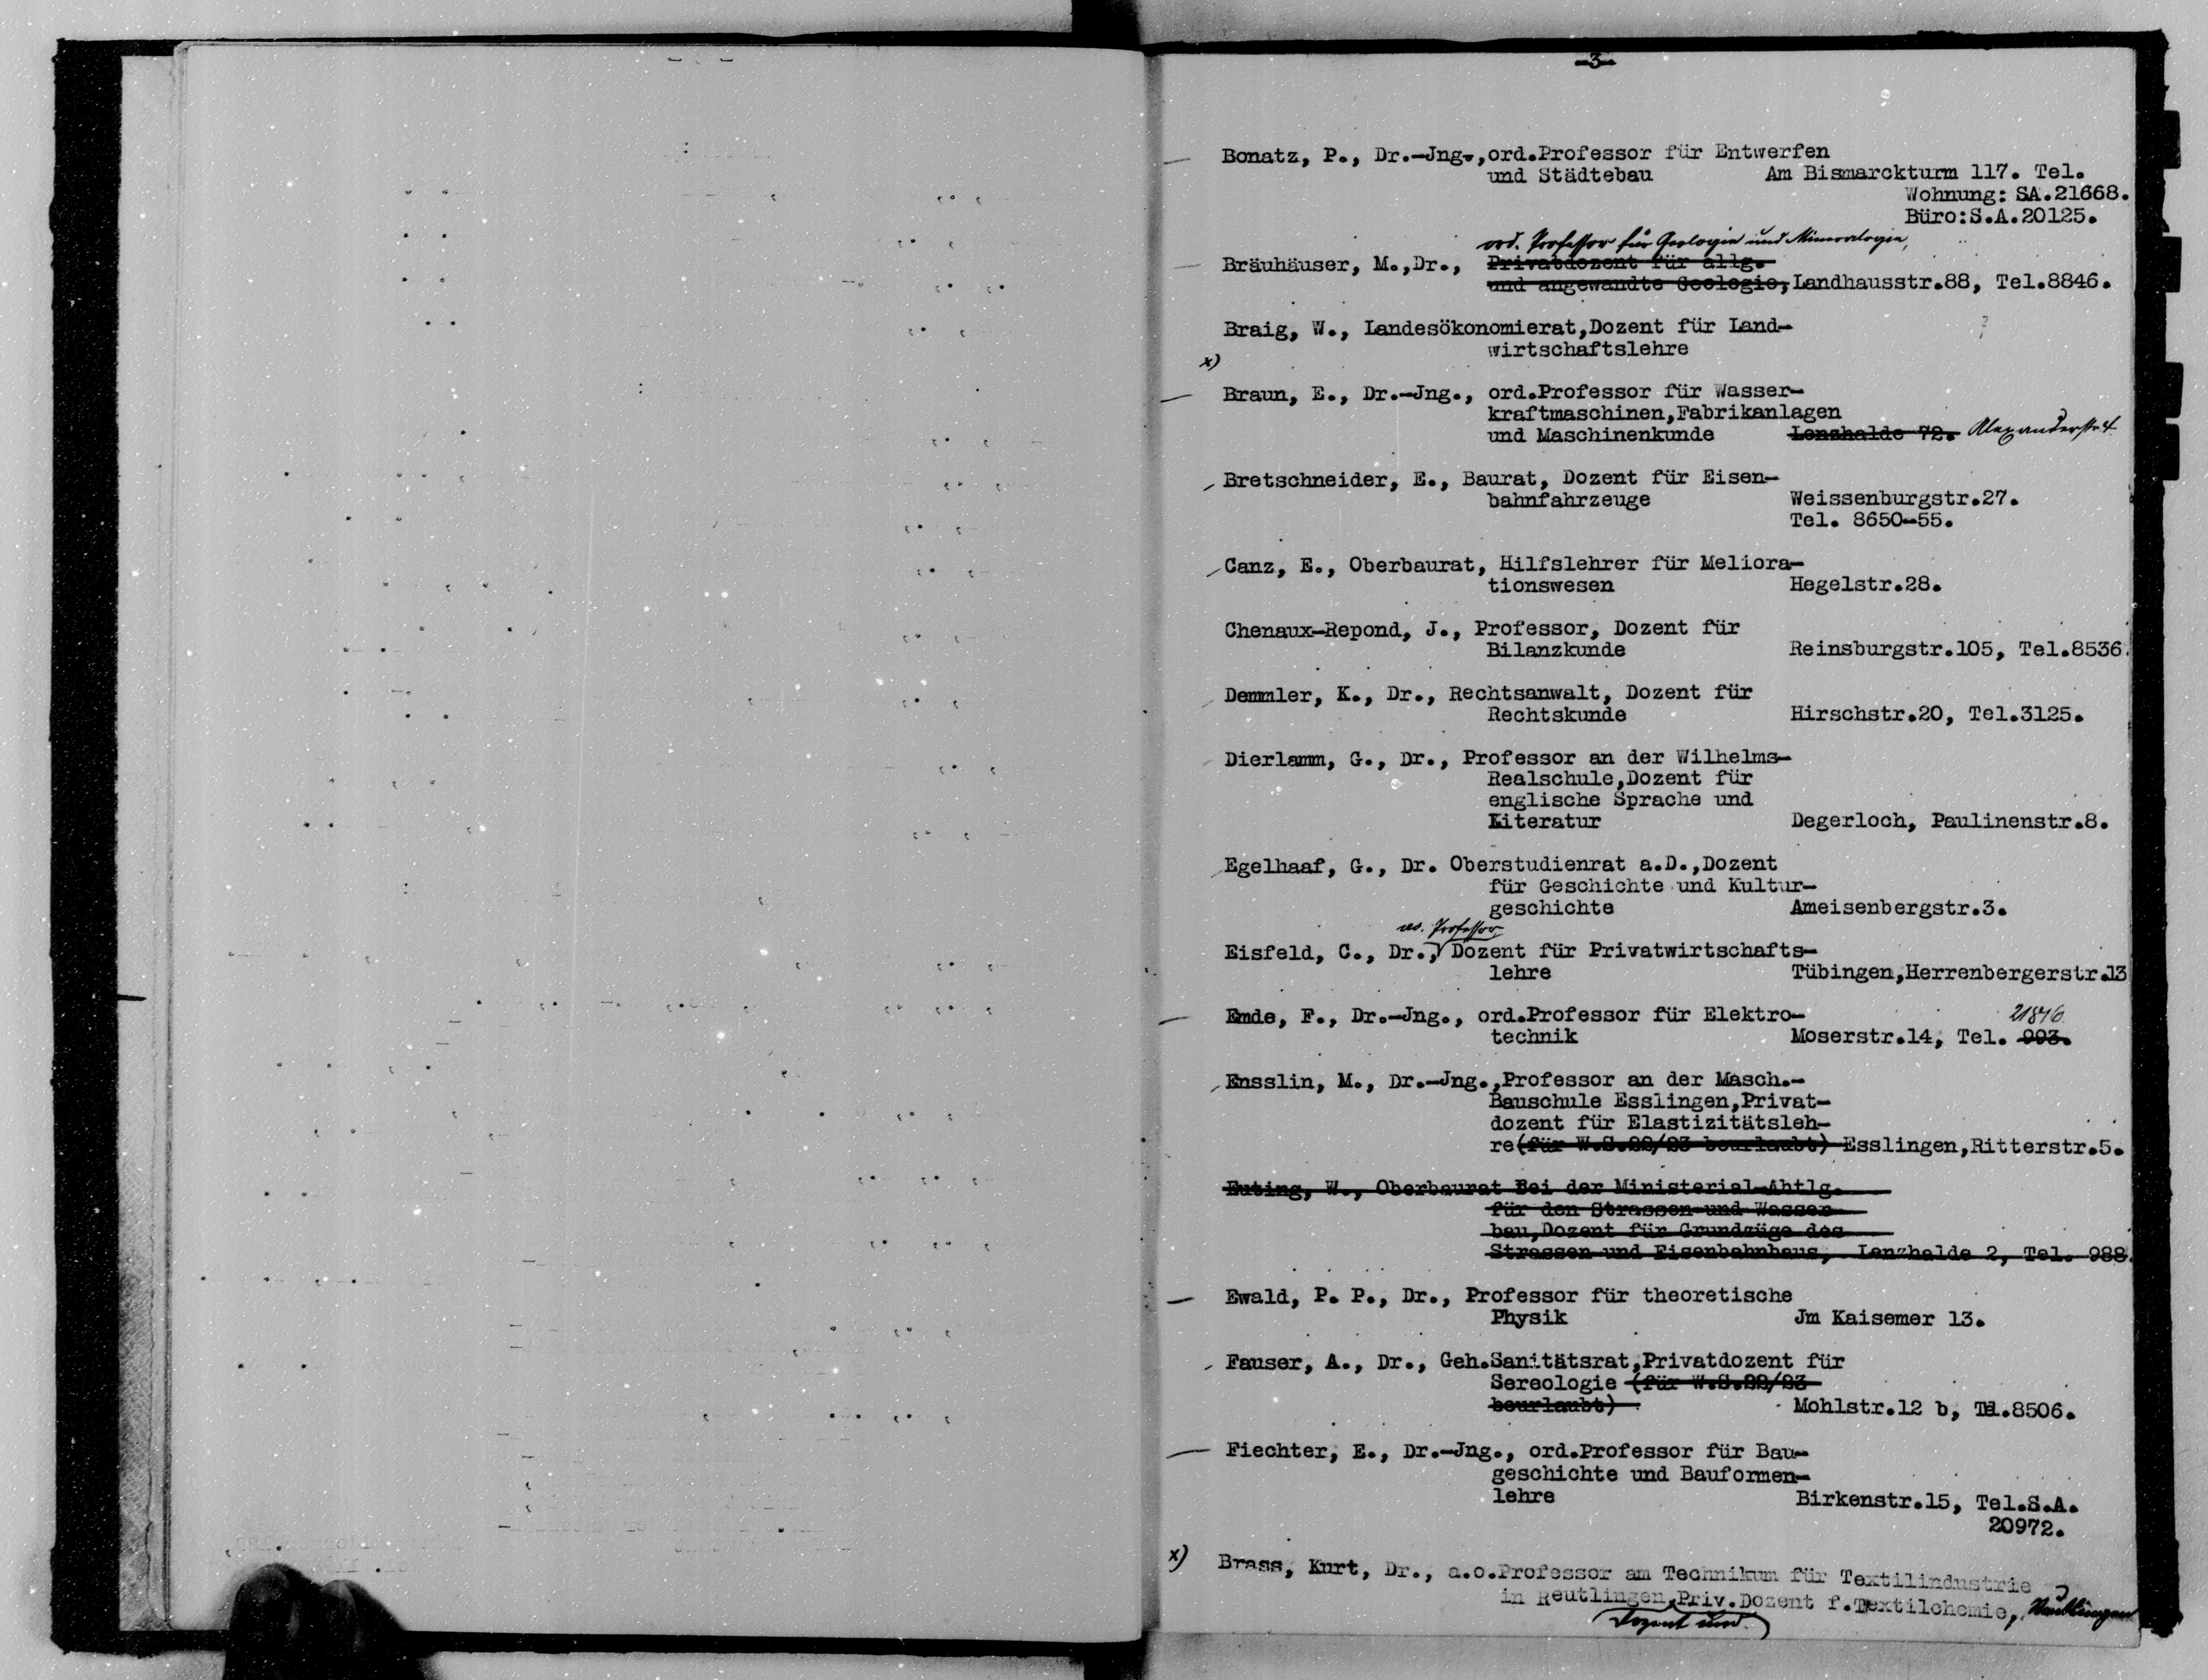 -3-
Bonatz, P., Dr.-Jng., ord.Professor für Entwerfen
und Städtebau Am Bismarckturm 117. Tel.
Wohnung: SA.21668.
Büro:S.A.20125.
ord. Professor für Geologie und Mineralogie,
Bräuhäuser, M.,Dr., Privatdozent für allg.
und angewandte Geologie, Landhausstr.88, Tel.8846.
Braig, W., Landesökonomierat,Dozent für Land- ?
wirtschaftslehre
x)
Braun, E., Dr.-Jng., ord.Professor für Wasser-
kraftmaschinen,Fabrikanlagen
und Maschinenkunde Lenzhalde 72. Alexanderstr.
Bretschneider, E., Baurat, Dozent für Eisen-
bahnfahrzeuge Weissenburgstr.27.
Tel. 8650-55.
Canz, E., Oberbaurat, Hilfslehrer für Meliora-
tionswesen Hegelstr.28.
Chenaux-Repond, J., Professor, Dozent für
Bilanzkunde Reinsburgstr.105, Tel.8536.
Demmler, K., Dr., Rechtsanwalt, Dozent für
Rechtskunde Hirschstr.20, Tel.3125.
Dierlamm, G., Dr., Professor an der Wilhelms-
Realschule,Dozent für
englische Sprache und
Literatur Degerloch, Paulinenstr.8.
Egelhaaf, G., Dr. Oberstudienrat a.D.,Dozent
für Geschichte und Kultur-
geschichte Ameisenbergstr.3.
Professor
Eisfeld, C., Dr., Dozent für Privatwirtschafts-
lehre Tübingen,Herrenbergerstr.13
Emde, F., Dr.-Jng., ord.Professor für Elektro- 21846
technik Moserstr.14, Tel. 993.
Ensslin, M., Dr.-Jng.,Professor an der Masch.-
Bauschule Esslingen,Privat-
dozent für Elastizitätsleh-
re(für W.S.22/23 beurlaubt) Esslingen,Ritterstr.5.
Euting, W., Oberbaurat Bei der Ministerial-Abtlg.
für den Strassen-und Wasser-
bau,Dozent für Grundzüge des
Strassen-und Eisenbahnbaus, Lenzhalde 2, Tel. 988.
Ewald, P. P., Dr., Professor für theoretische
Physik Jm Kaisemer 13.
Fauser, A., Dr., Geh.Sanitätsrat,Privatdozent für
Sereologie (für W.S.22/23
beurlaubt) Mohlstr.12 b, Tel.8506.
Fiechter, E., Dr.-Jng., ord.Professor für Bau-
geschichte und Bauformen-
lehre Birkenstr.15, Tel.S.A.
20972.
x) Brass, Kurt, Dr., a.o.Professor am Technikum für Textilindustrie
in Reutlingen,Priv.Dozent f.Textilchemie, Reutlingen
Dozent und